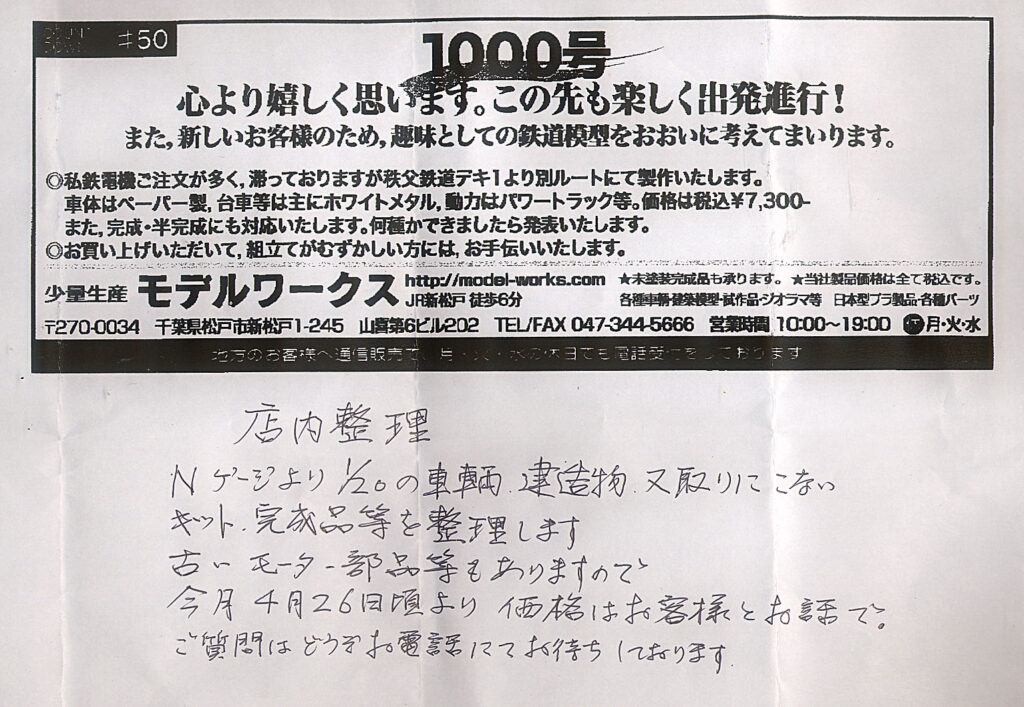 ♯50
1000号
心より嬉しく思います。この先も楽しく出発進行!
また,新しいお客様のため,趣味としての鉄道模型をおおいに考えてまいります。
◎私鉄電機ご注文が多く,滞っておりますが秩父鉄道デキ1より別ルートにて製作いたします。
車体はペーパー製,台車等は主にホワイトメタル,動力はパワートラック等。価格は税込¥7,300-
また,完成・半完成にも対応いたします。何種かできましたら発表いたします。
◎お買い上げいただいて,組立てがむずかしい方には,お手伝いいたします。
少量生産 モデルワークス http://model-works.com ★未塗装完成品も承ります。 ★当社製品価格は全て税込です。
JR新松戸 徒歩6分 各種車輌・建築模型・試作品・ジオラマ等 日本型プラ製品・各種パーツ
〒270-0034 千葉県松戸市新松戸1-245 山喜第6ビル202 TEL/FAX 047-344-5666 営業時間 10:00〜19:00 ㊡月・火・水
地方のお客様へ通信販売で、月・火・水の休日でも電話受付をしております
店内整理
Nゲージより 1/20の車輌、建造物、又取りにこない
キット、完成品等を整理します
古いモーター部品等もありますので
今月4月26日頃より 価格はお客様とお話で。
ご質問はどうぞお電話にてお待ちしております。